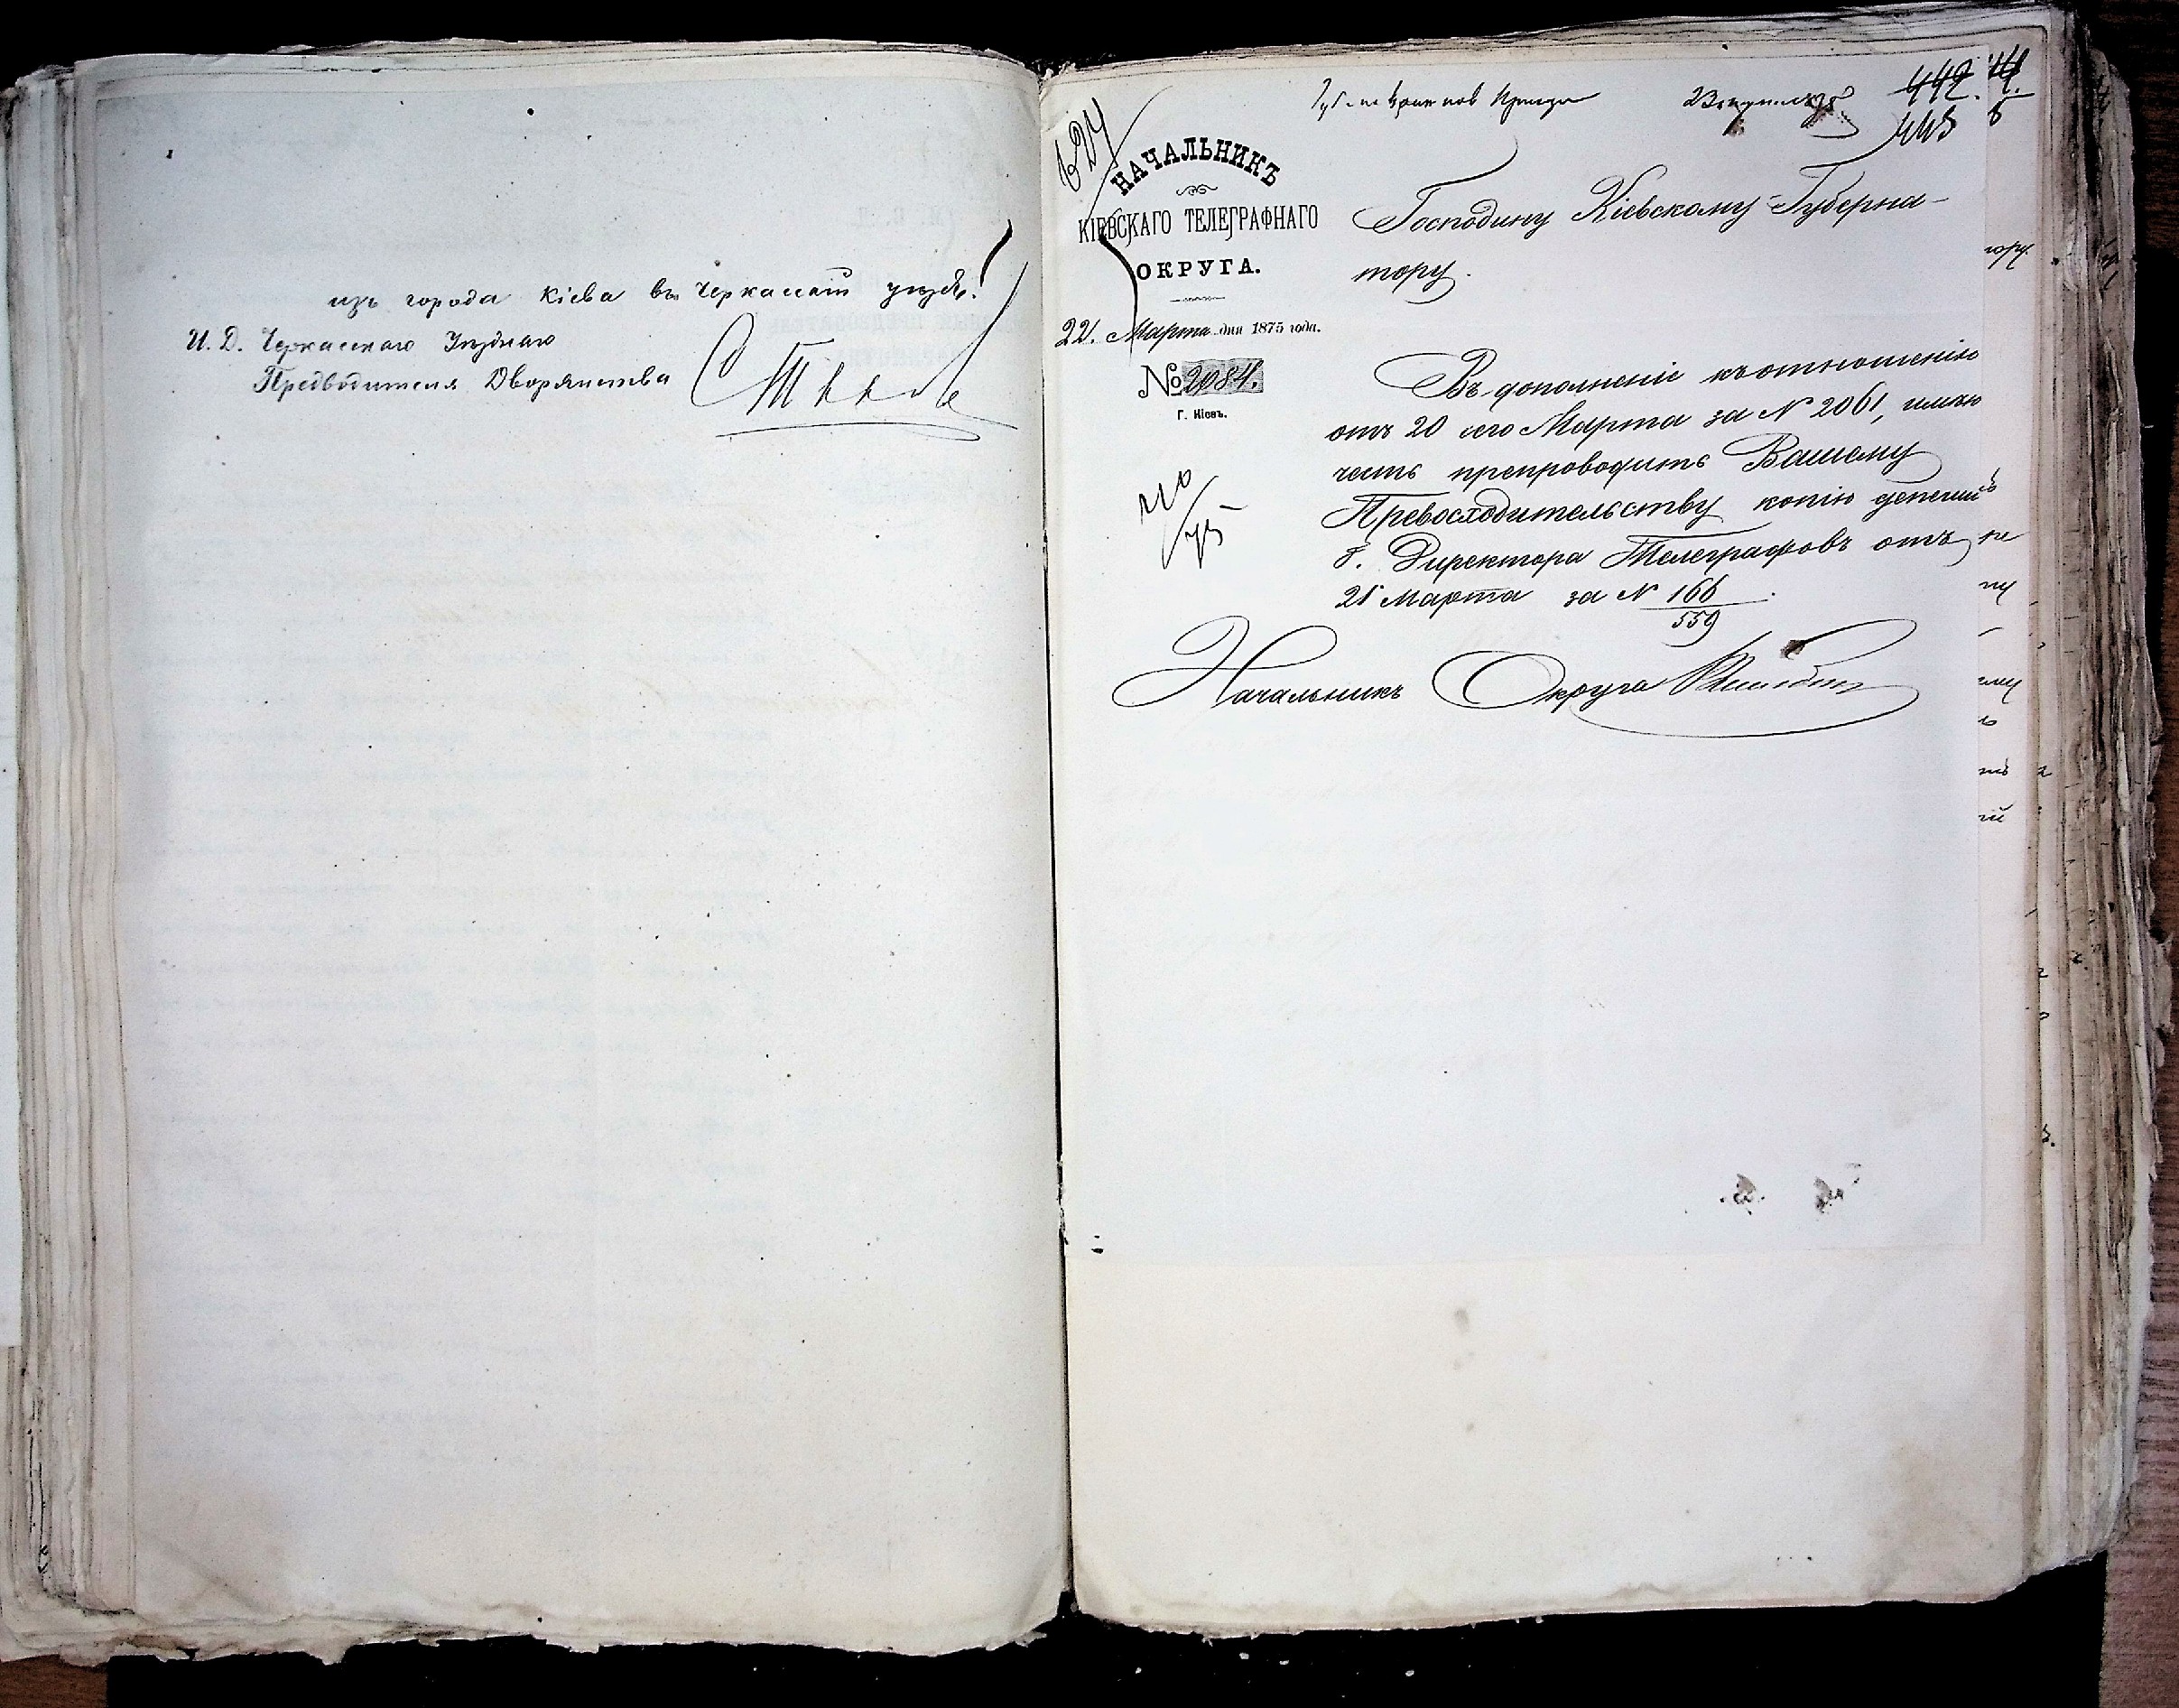 изъ города Кіева въ Черкасскій уѣздъ.
И. Д. Черкасскаго Уѣзднаго
Предводителя Дворянства
624
442.
443
НАЧАЛЬНИКЪ
КІЕВСКАГО ТЕЛЕГРАФНАГО
ОКРУГА.
22. Марта дня 1875 года.
№ 2084.
Г. Кіевъ.
210
75
Господину Кіевскому Губерна-
тору.
Въ дополненіе къ отношенію
отъ 20 сего Марта за № 2061, имѣю
честь препроводить Вашему
Превосходительству копію депеши
г. Директора Телеграфовъ отъ
21 Марта за № 166
559
Начальникъ Округа